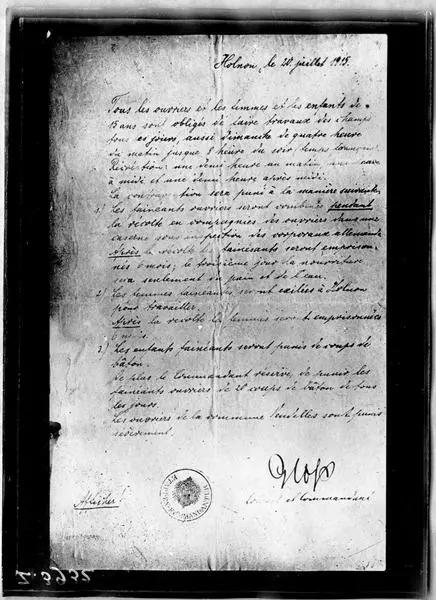 Holnon, le 20 juillet 1915.
Tous les ouvriers et les femmes et les enfants de
15 ans sont obligés de faire travaux des champs
tous les jours, aussi dimanche de quatre heure
du matin jusque 8 heure du soir temps
Récréation: une demi heure au matin une
à midi et une demi heure après midi.
La sera puni à la manière suivante
1) Les fainéants ouvriers seront combinés pendant
la récolte en compagnies des ouvriers dans une
caserne sous inspection des corporaux allemands.
Après la récolte les fainéants seront emprison-
nés 6 mois; le troisième jour la nourriture
sera seulement du pain et de l'eau.
2) Les femmes fainéantes seront exilées à Holnon
pour travailler.
Après la récolte les femmes seront emprisonnées
6 mois.
3) Les enfants fainéants seront punis de coups de
bâton.
De plus le Commandant réserve de punir les
fainéants ouvriers de 20 coups de bâton de tous
les jours.
Les ouvriers de la commune Vendelles sont punis
sévèrement.
Glop
et Commandant
Afficher